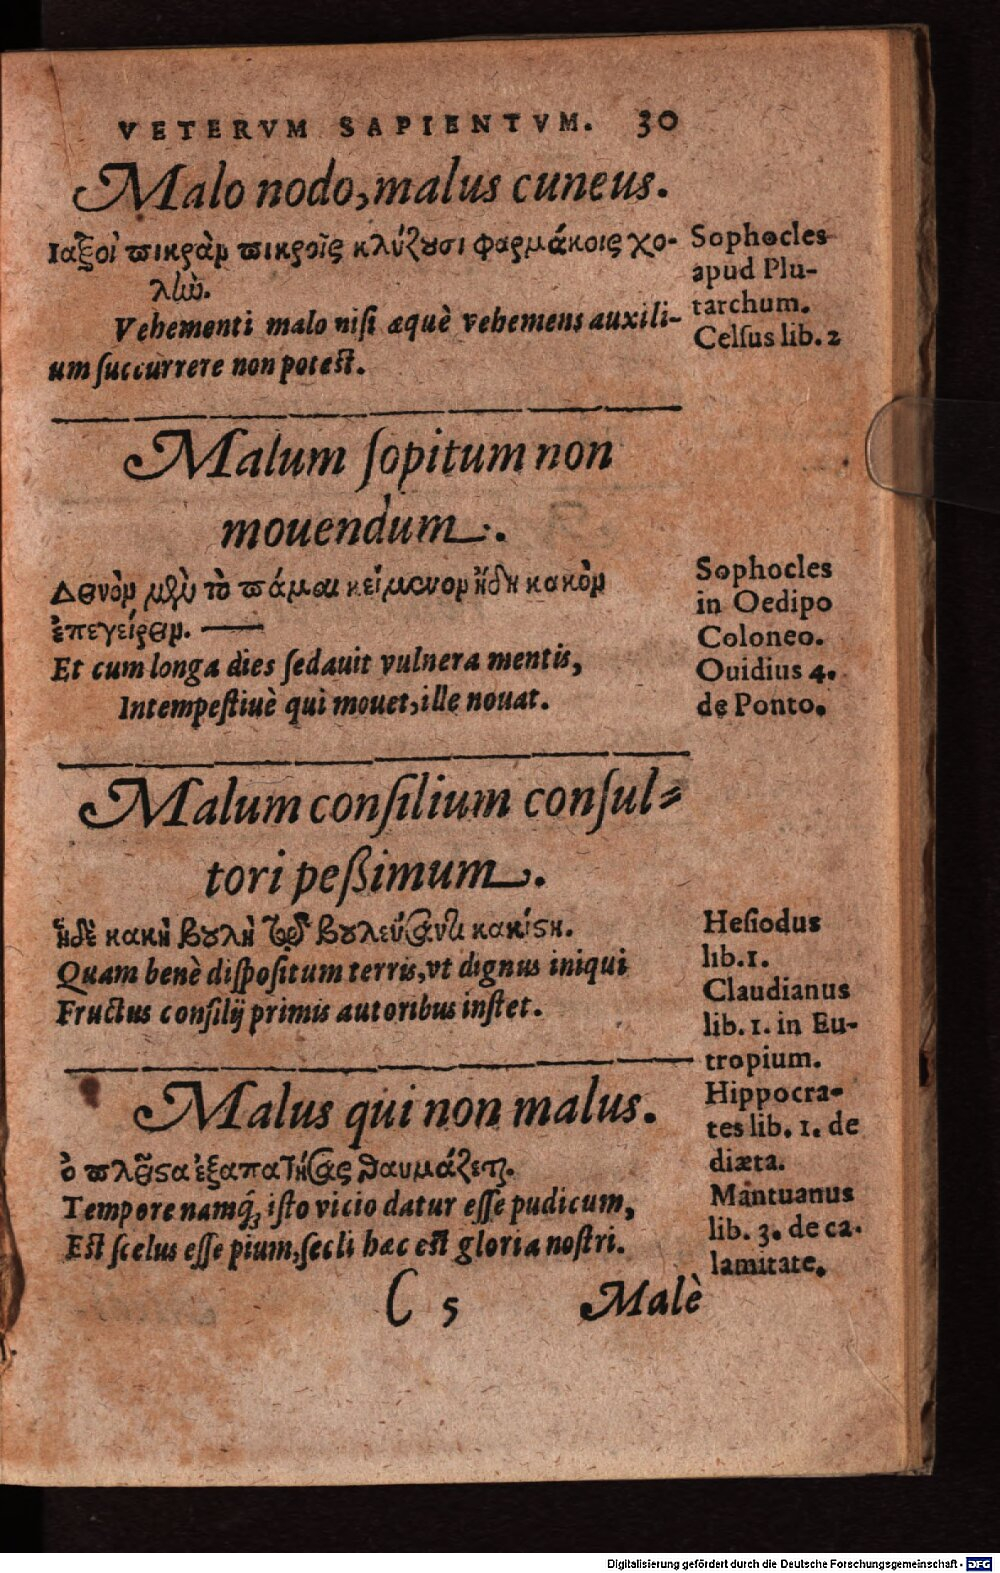 VETERVM SAPIENTVM. 30
Malo nodo, malus cuneus.
Ιαξοὶ πικρὰν πικροῖς κλύζουσι φαρμάκοις χο-
λὼ.
Vehementi malo nisi æquè vehemens auxili-
um succurrere non potest.
Sophocles
apud Plu-
tarchum.
Celsus lib. 2
Malum sopitum non
mouendum.
Δεινὸν μὲν τὸ πάλαι κείμενον ἤδη κακὸν
ἐπεγείρειν. —
Et cum longa dies sedauit vulnera mentis,
Intempestiuè qui mouet, ille nouat.
Sophocles
in Oedipo
Coloneo.
Ouidius 4.
de Ponto.
Malum consilium consul-
tori peßimum.
ἡδὲ κακὴ βουλὴ τῷ βουλεύσαντι κακίστη.
Quam benè dispositum terris, vt dignus iniqui
Fructus consilij primis autoribus instet.
Hesiodus
lib. 1.
Claudianus
lib. 1. in Eu-
tropium.
Malus qui non malus.
ὁ πλεῖστα ἐξαπατήσας θαυμάζεται.
Tempore namq́ue isto vicio datur esse pudicum,
Est scelus esse pium, secli hæc est gloria nostri.
Hippocra-
tes lib. 1. de
diæta.
Mantuanus
lib. 3. de ca-
lamitate.
C 5 Malè
Digitalisierung gefördert durch die Deutsche Forschungsgemeinschaft - DFG